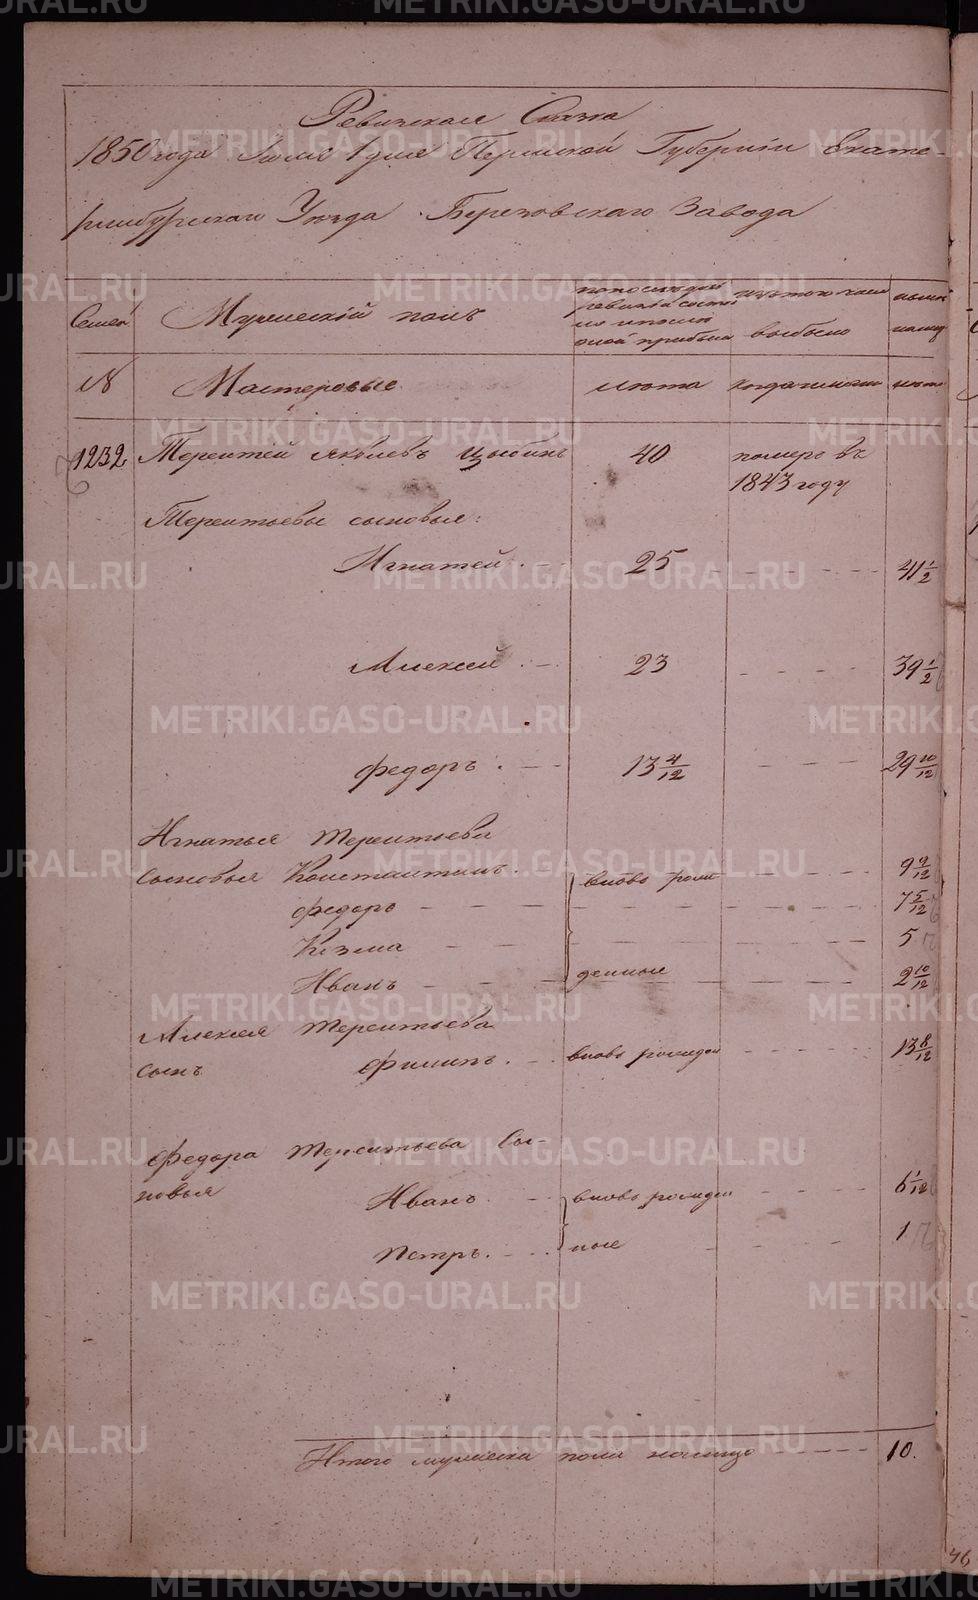 Ревизская Сказка
1850 года Июля 1 дня Пермской Губернии Екате-
ринбургскаго Уезда Березовскаго Завода
Семей
Мужеский полъ
по последней ревизии состояло и после оной прибыло
изъ того числа выбыло
ныне налицо
№ Мастеровые лета когда именно лета
1232 Терентей Яковлевъ Цыбинъ 40 померъ въ
1843 году
Терентьевы сыновья:
Игнатей 25 41 1/2
Алексей 23 39 1/2
Федоръ 13 4/12 29 10/12
Игнатья Терентьева
сыновья Константинъ вновь рож 9 9/12
Федоръ 7 5/12
Козма 5
Иванъ денные 2 10/12
Алексея Терентьева
сынъ Филипъ вновь рожден 13 8/12
Федора Терентьева сы-
новья
Иванъ вновь рожден 6 1/12
Петръ ные 1
Итого мужеска пола налицо 10.
46
METRIKI.GASO-URAL.RU